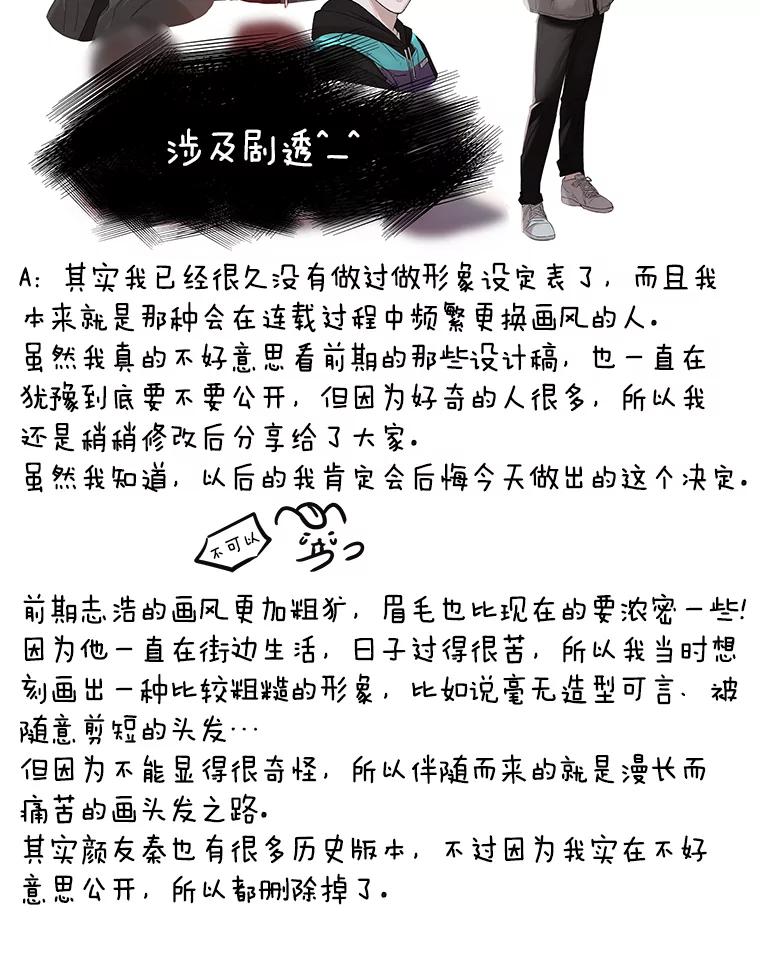 涉及剧透^_^
A: 其实我已经很久没有做过做形象设定表了，而且我
本来就是那种会在连载过程中频繁更换画风的人。
虽然我真的不好意思看前期的那些设计稿，也一直在
犹豫到底要不要公开，但因为好奇的人很多，所以我
还是稍稍修改后分享给了大家。
虽然我知道，以后的我肯定会后悔今天做出的这个决定。
不可以
前期志浩的画风更加粗犷，眉毛也比现在的要浓密一些!
因为他一直在街边生活，日子过得很苦，所以我当时想
刻画出一种比较粗糙的形象，比如说毫无造型可言、被
随意剪短的头发…
但因为不能显得很奇怪，所以伴随而来的就是漫长而
痛苦的画头发之路。
其实颜友秦也有很多历史版本，不过因为我实在不好
意思公开，所以都删除掉了。